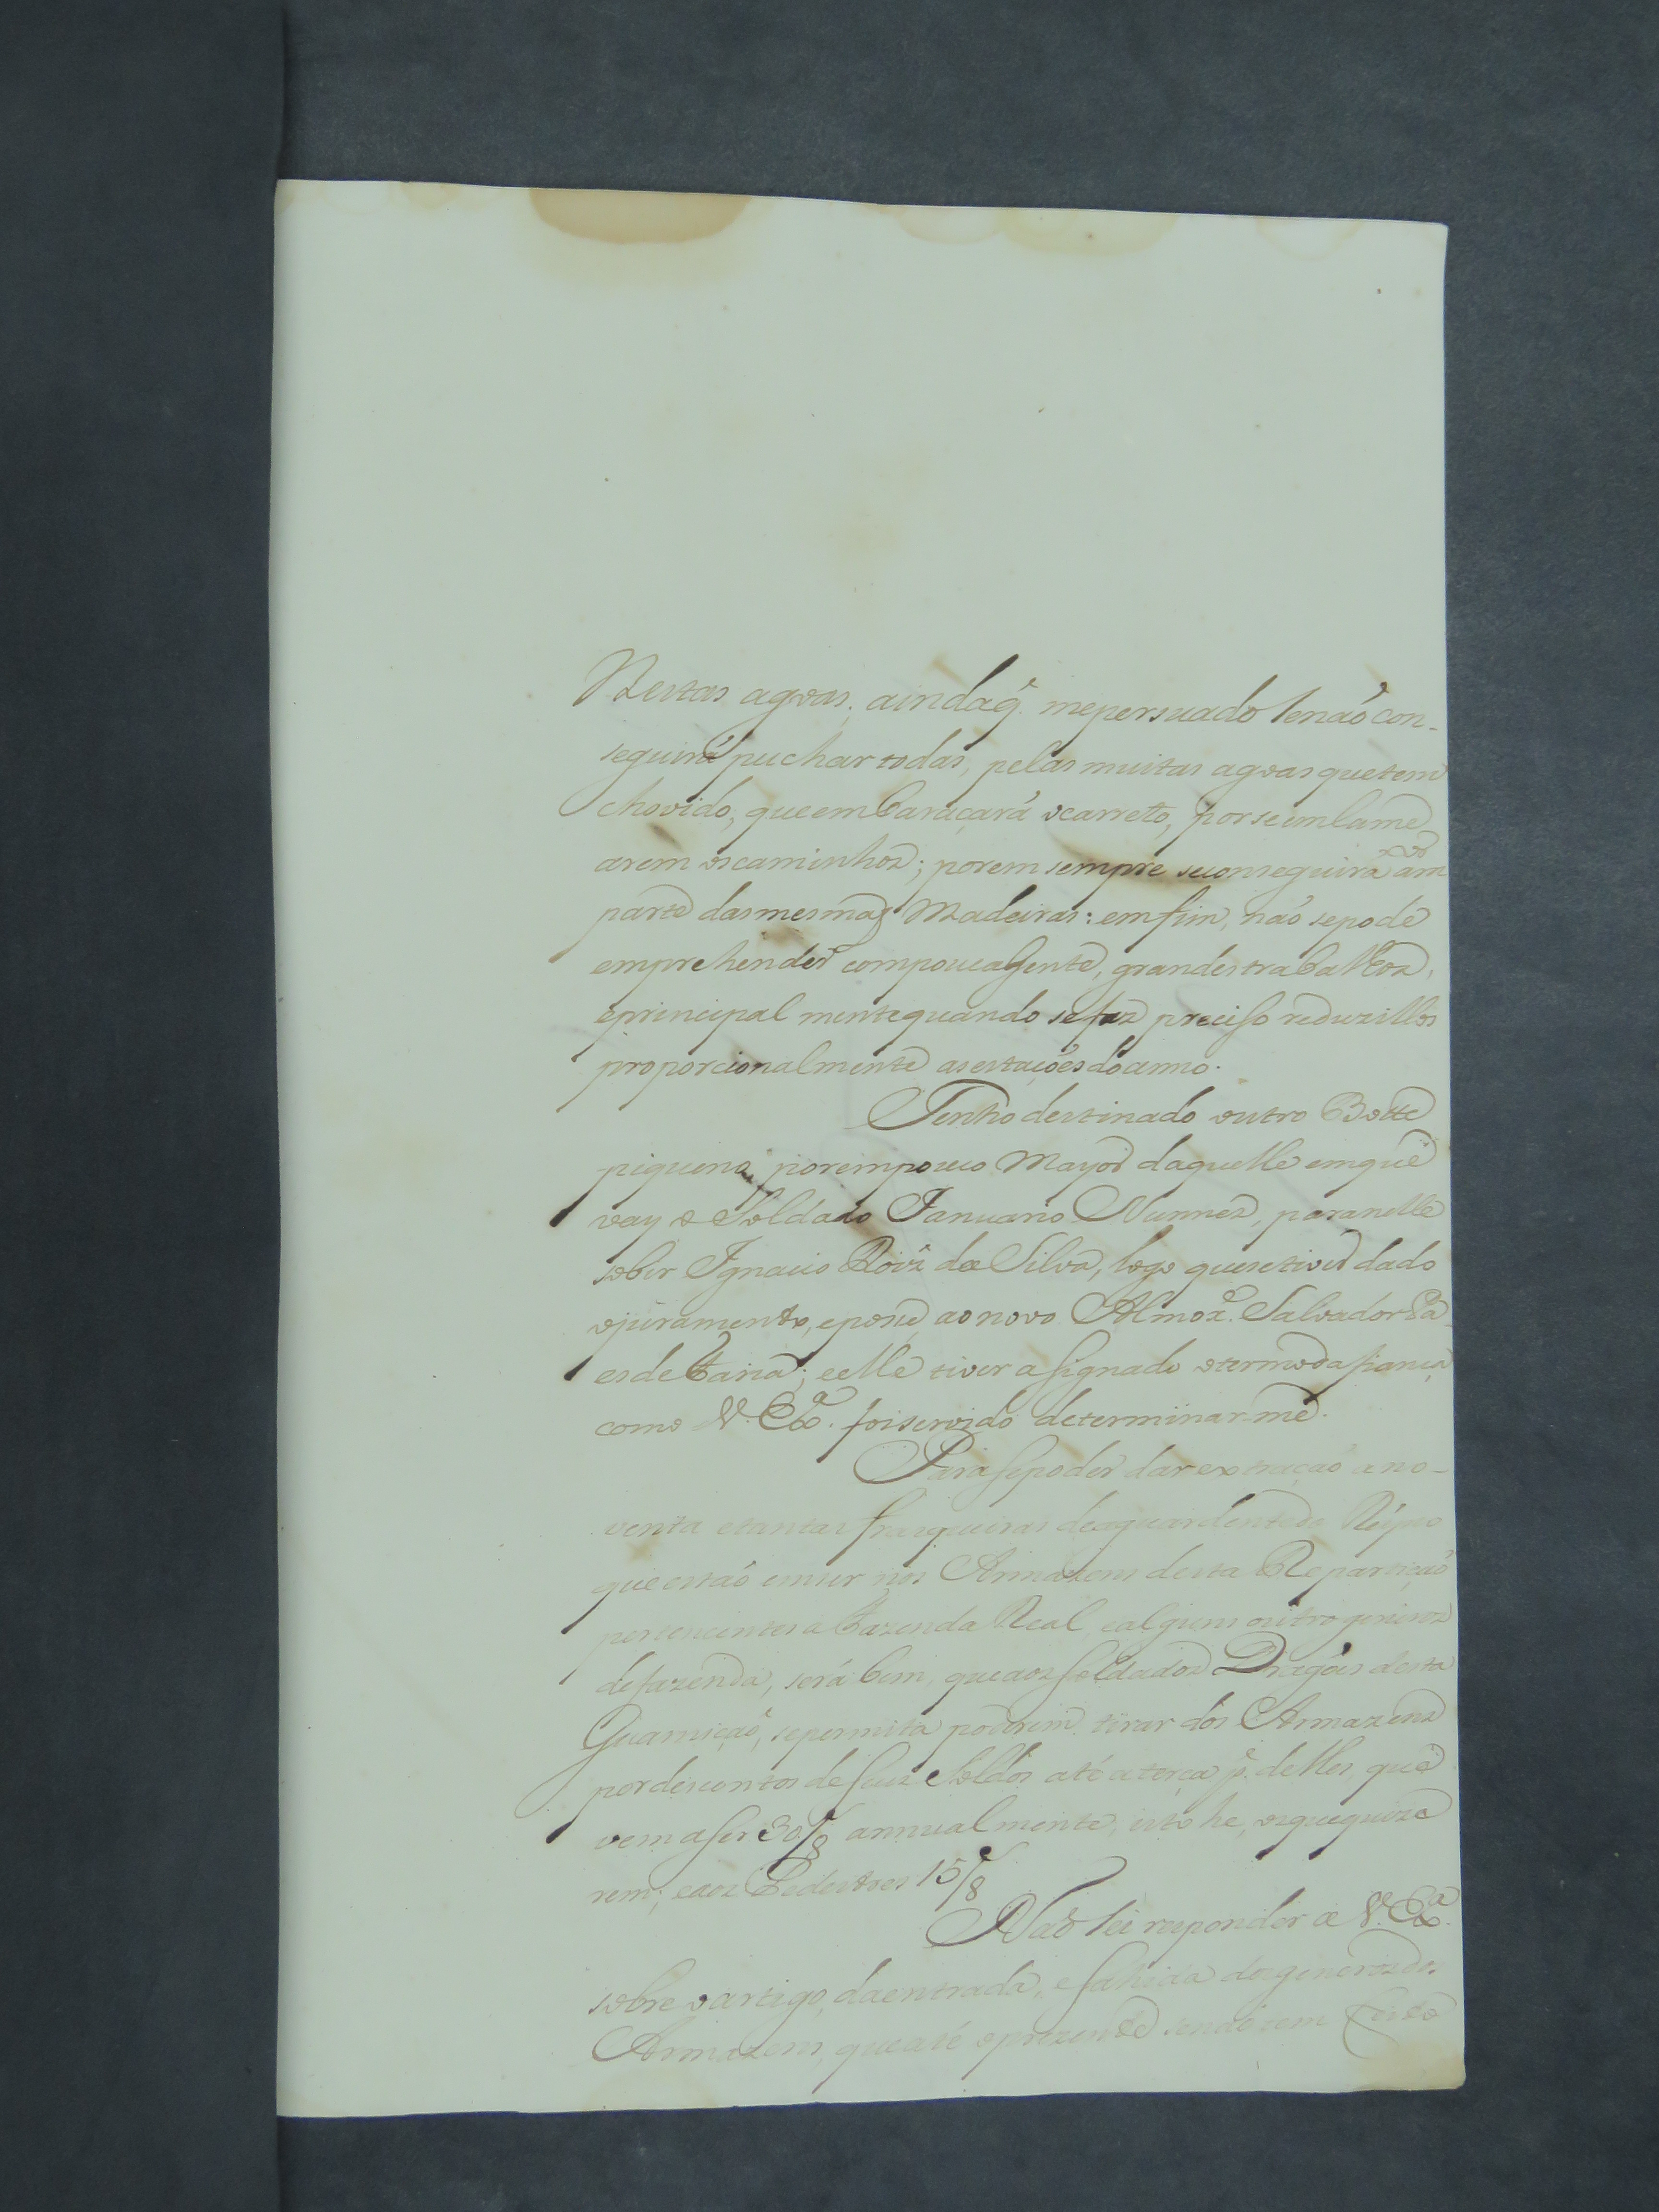 Nestas agoas, aindaq̃ mepersuado senaõ con-
seguirá puchar todas, pelas muitas agoas quetem
chovido, queembaraçará ocarreto, porseemlame
arem oscaminhos; porem sempre seconseguirá
parte dasmesmas Madeiras: emfim, naõ sepode
emprehender compoucagente, grandestrabalhos,
eprincipalmentequando sefaz preciso reduzillos
proporcionalmente asestaçoẽsdoanno.
Tenho destinado outro Botte
piqueno, porempouco Mayor daquelle emque
vay o Soldado Januario Nunnes, paranelle
sobir Ignacio Roiz̃ da Silva, logo quesetiver dado
ojuramento, eposse, aonovo Almox.e Salvador Pa-
esdeFaria; eelle tiver asignado otermodafiança
como V. Ex.a foiservido determinar-me.
Parasepoder darextraçaõ ano-
venta etantas frasqueiras deaguardentedo Reyno
queestaõ emser nos Armazens desta Repartiçaõ
pertencentesaFazenda Real, ealguns outrogeneros
defazenda, será bem, queaos soldados Dragoẽs desta
Guarniçaõ, sepermita poderem tirar dos Armazens
pordescontos deseus soldos até aterça p.e delles, que
vemaser 30/8 annualmente, istohe, osquequize
rem; eaos Pedestres 15/8
Naõ sei responder a V. Ex.a
sobre oartigo, daentrada, esahida dosgenerosdos
Armazens, queaté oprezente senaõtem